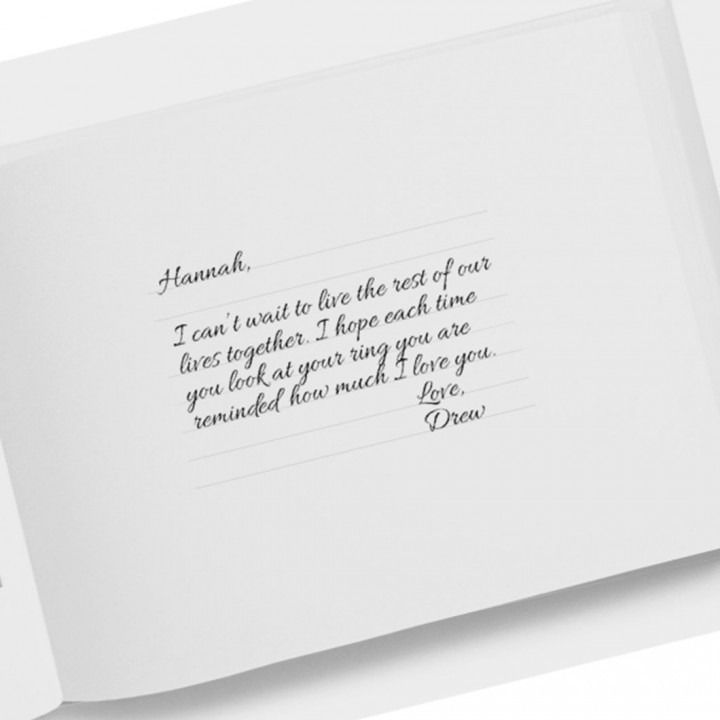 Hannah,
I can't wait to live the rest of our
lives together. I hope each time
you look at your ring you are
reminded how much I love you.
Love,
Drew